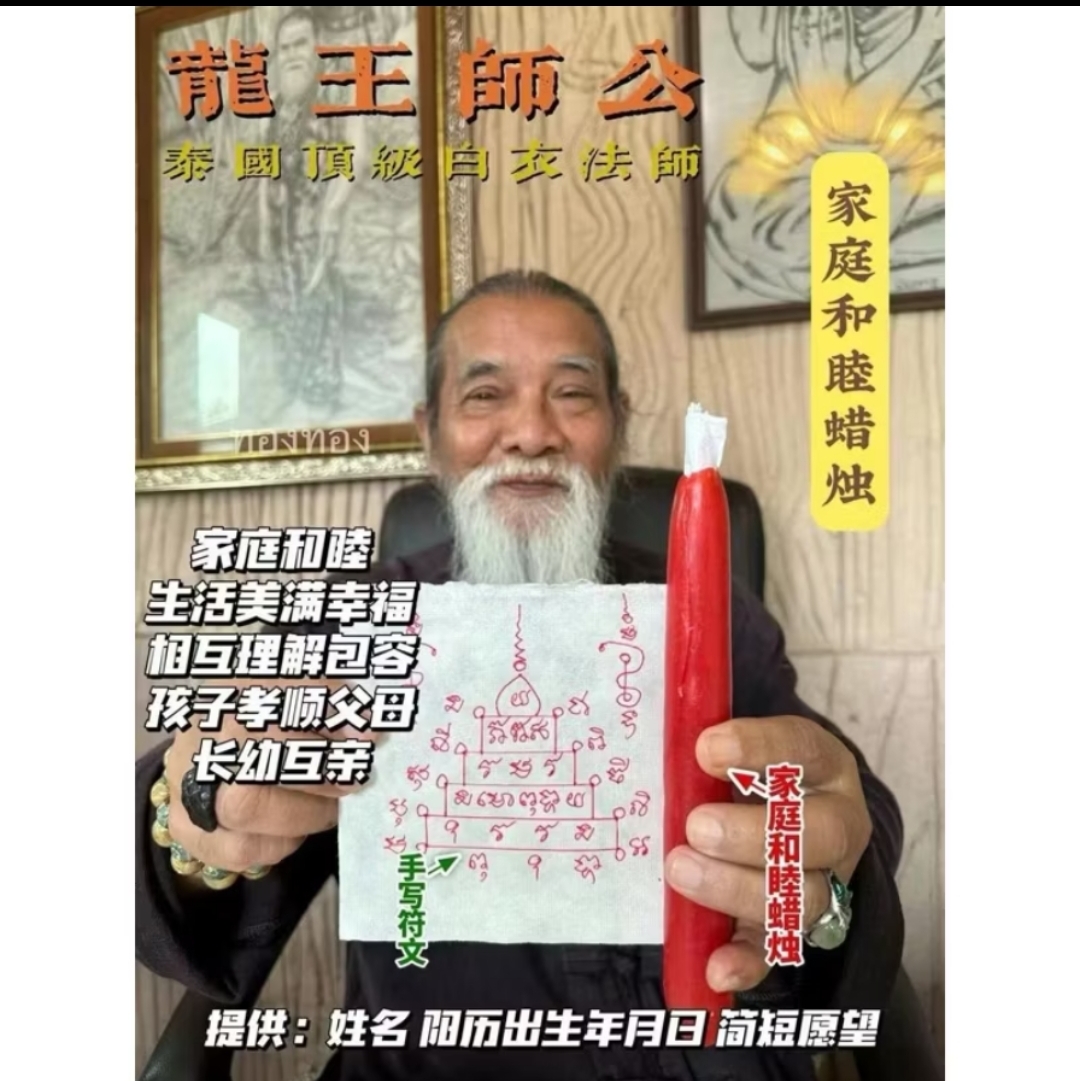 龍王師公
泰國頂級白衣法師
家庭和睦蜡烛
ทองทอง
家庭和睦
生活美满幸福
相互理解包容
孩子孝顺父母
长幼互亲
手写符文
家庭和睦蜡烛
提供：姓名 阳历出生年月日 简短愿望